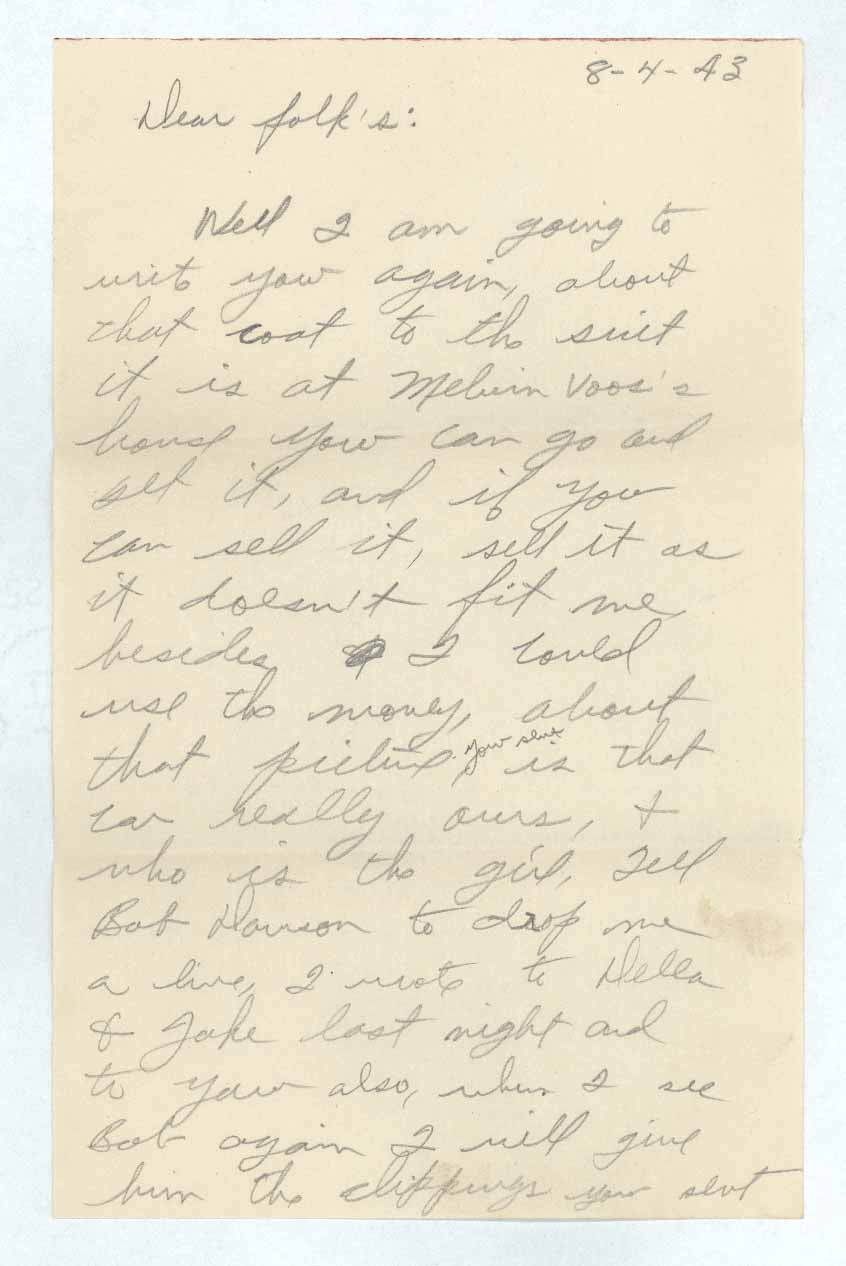 8-4-43
Dear folk's:
Well I am going to
write you again, about
that coat to the suit
it is at Melvin Voos's
house you can go and
get it, and if you
can sell it, sell it as
it doesn't fit me
besides I could
use the money, about
that picture you sent is that
car really ours, &
who is the girl, Tell
Bob Dawson to drop me
a line, I wrote to Della
& Jake last night and
to you also, when I see
Bob again I will give
him the clippings you sent